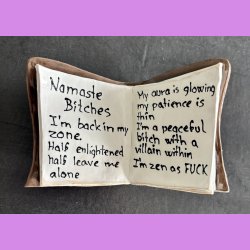 Namaste
Bitches
I'm back in my
zone.
Half enlightened
Half leave me
alone
My aura is glowing
my patience is
thin
I'm a peaceful
bitch with a
villain within
I'm zen as FUCK